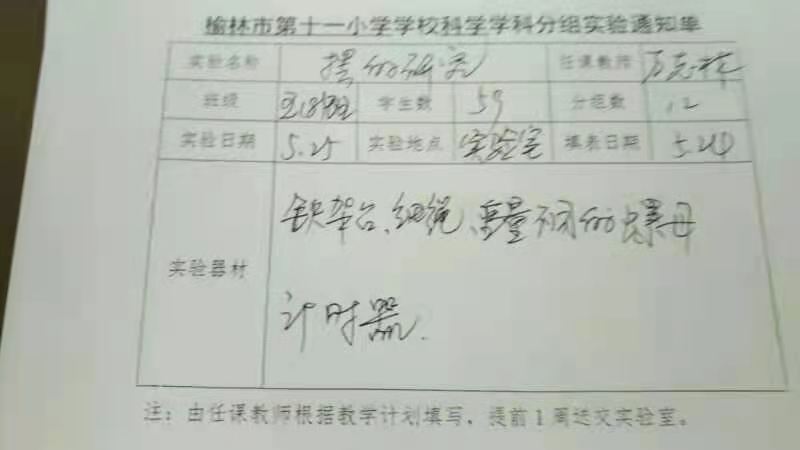 榆林市第十一小学学校科学学科分组实验通知单
实验名称 摆的研究 任课教师
班级 学生数 59 分组数 12
实验日期 5.25 实验地点 实验室 填表日期 5.24
铁架台、细绳、重量不同的螺母
实验器材
计时器.
注：由任课教师根据教学计划填写，提前1周送交实验室。